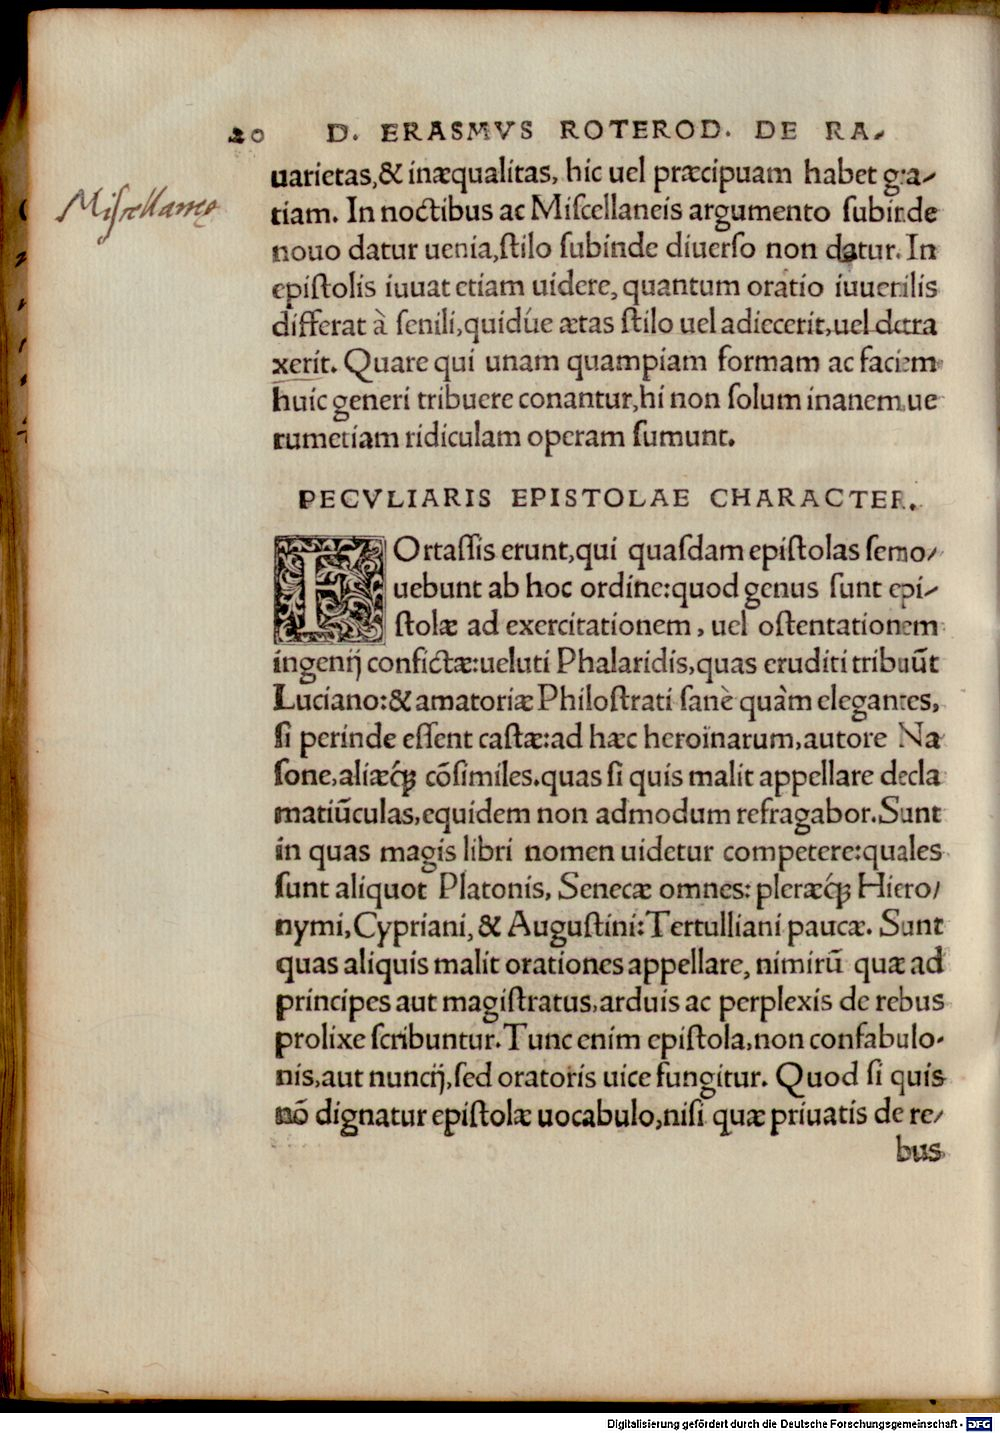 20 D. ERASMVS ROTEROD. DE RA-
uarietas,& inæqualitas, hic uel præcipuam habet gra-
Miscellaneę
tiam. In noctibus ac Miſcellaneis argumento ſubinde
nouo datur uenia,ſtilo ſubinde diuerſo non datur. In
epiſtolis iuuat etiam uidere, quantum oratio iuuenilis
differat à ſenili,quidúe ætas ſtilo uel adiecerit,uel detra
xerit. Quare qui unam quampiam formam ac faciem
huic generi tribuere conantur,hi non ſolum inanem,ue
rumetiam ridiculam operam ſumunt.
PECVLIARIS EPISTOLAE CHARACTER.
FOrtaſſis erunt,qui quaſdam epiſtolas ſemo-
uebunt ab hoc ordine:quod genus ſunt epi-
ſtolæ ad exercitationem, uel oſtentationem
ingenij confictæ:ueluti Phalaridis,quas eruditi tribuũt
Luciano:& amatoriæ Philoſtrati ſanè quàm elegantes,
ſi perinde eſſent caſtæ:ad hæc heroinarum,autore Na
ſone,aliæq́ꝫ cõſimiles.quas ſi quis malit appellare decla
matiũculas,equidem non admodum refragabor.Sunt
in quas magis libri nomen uidetur competere:quales
ſunt aliquot Platonis, Senecæ omnes: pleræq́ꝫ Hiero-
nymi,Cypriani, & Auguſtini:Tertulliani paucæ. Sunt
quas aliquis malit orationes appellare, nimirũ quæ ad
principes aut magiſtratus,arduis ac perplexis de rebus
prolixe ſcribuntur.Tunc enim epiſtola,non confabulo-
nis,aut nuncij,ſed oratoris uice fungitur. Quod ſi quis
nõ dignatur epiſtolæ uocabulo,niſi quæ priuatis de re-
bus
Digitalisierung gefördert durch die Deutsche Forschungsgemeinschaft - DFG